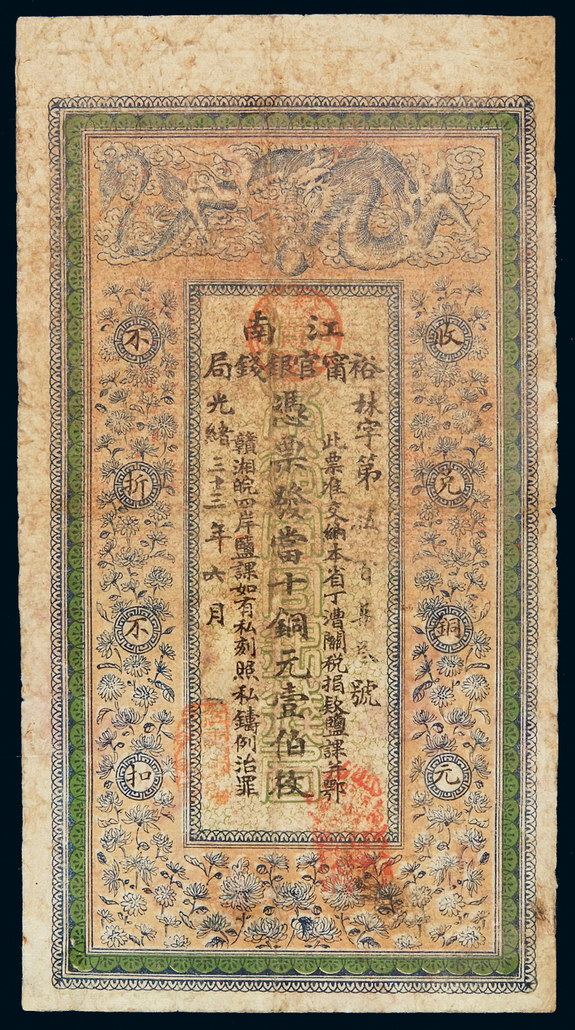 江南
裕甯官銀錢局
林字第伍百號
此票准交納本省丁漕關稅捐欵鹽課并鄂
憑票發當十銅元壹佰枚
贛湘皖四岸鹽課如有私刻照私鑄例治罪
光緒三十三年六月
收兌銅元
不折不扣